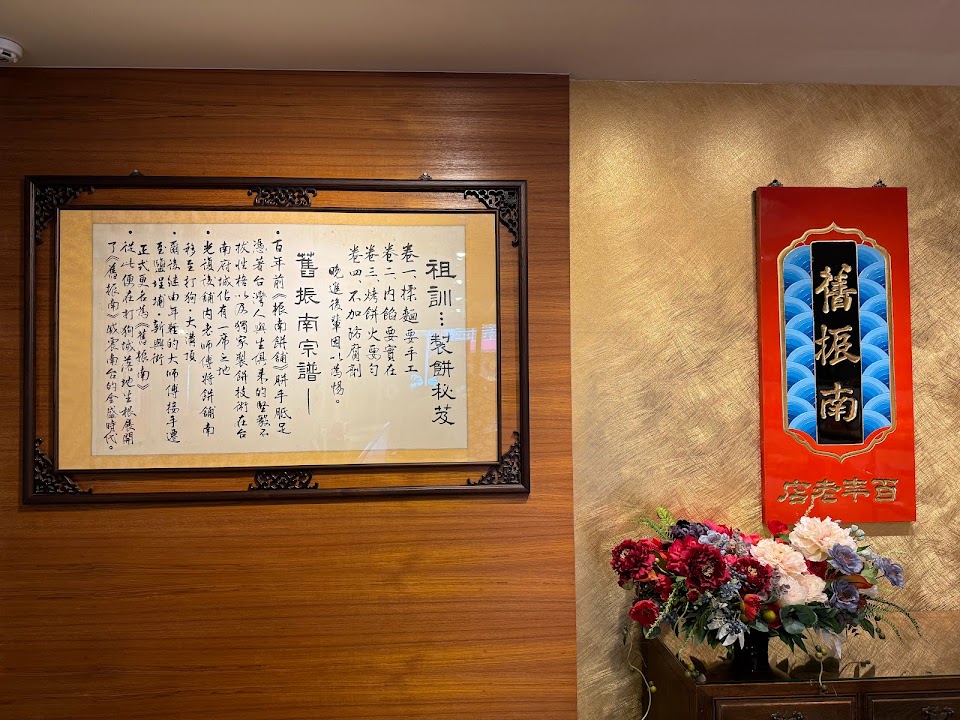 祖訓:製餅秘芨
卷一、揉麵要手工
卷二、內餡要實在
卷三、烤餅火要勻
卷四、不加防腐劑
晚進後輩因以為惕。
舊振南宗譜—
•百年前《振南餅舖》胼手胝足
憑著台灣人與生俱來的堅毅不
拔性格以及獨家製餅技術在台
南府城佔有一席之地
•光復後舖內老師傅將餅舖南
移至打狗·大溝頂
•爾後繼由年輕的大師傅接手遷
至鹽埕埔·新興街
正式更名為《舊振南》
•從此便在打狗城落地生根展開
了《舊振南》威震南台的全盛時代。
舊振南
百年老店